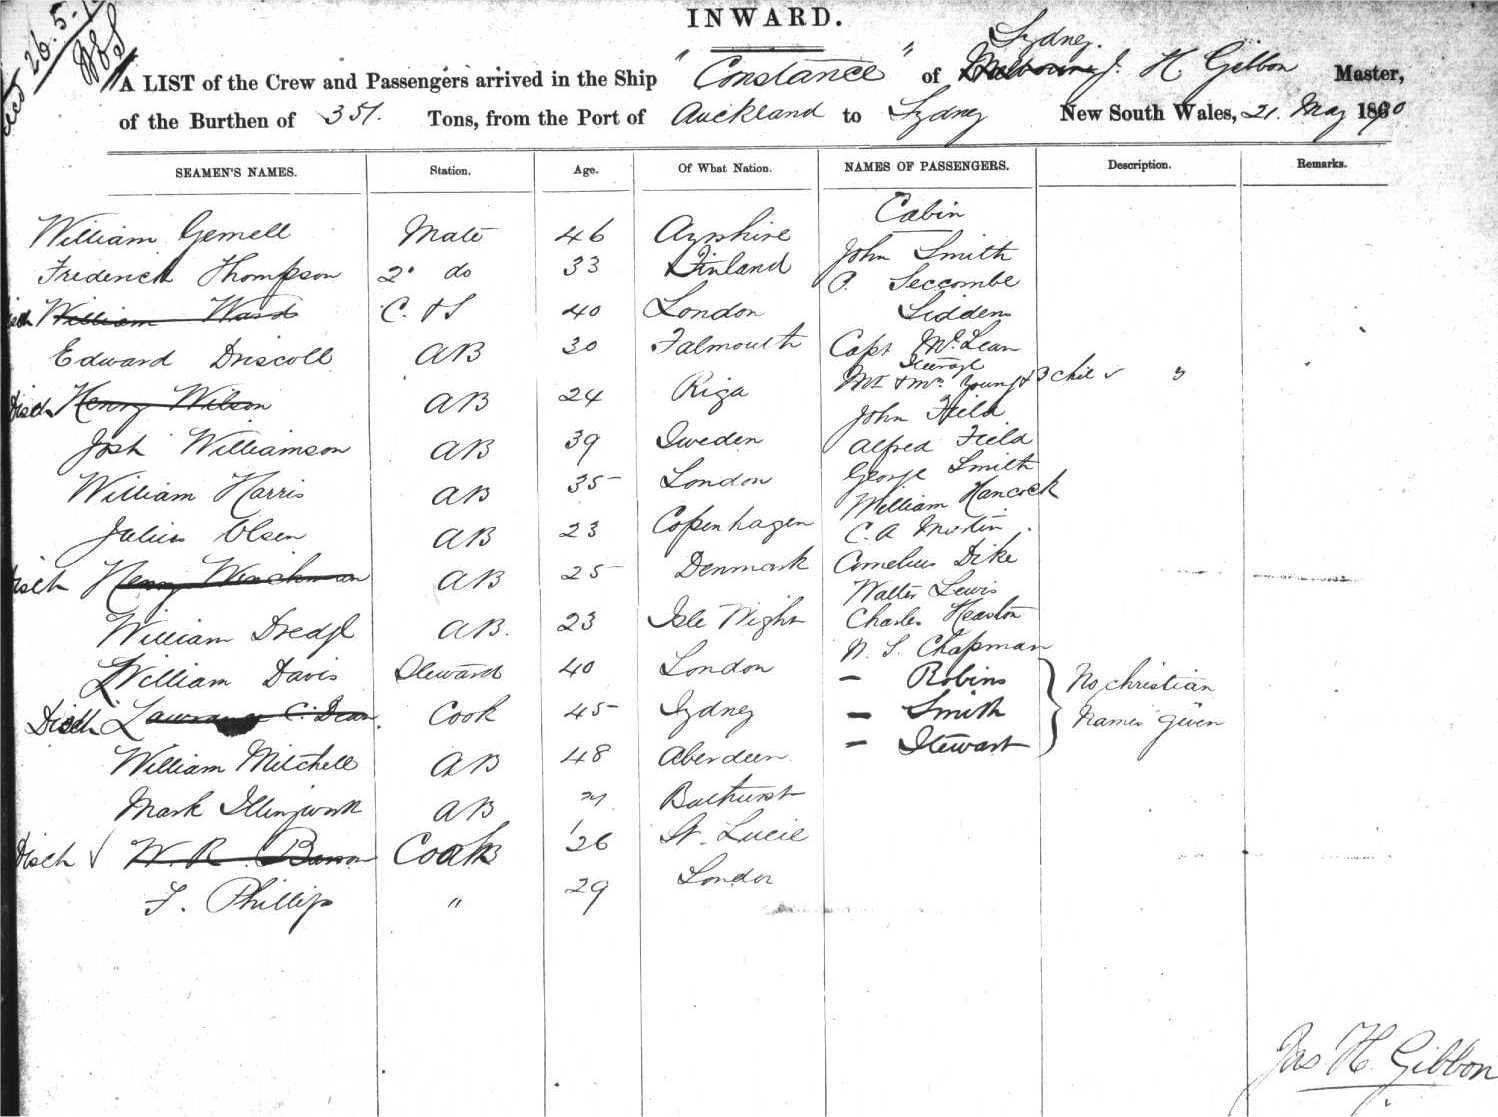 26.5.
INWARD.
A LIST of the Crew and Passengers arrived in the Ship "Constance" of Melbourne Sydney. J. H Gibbon Master,
of the Burthen of 351. Tons, from the Port of Auckland to Sydney New South Wales, 21. May 1870
SEAMEN'S NAMES. Station. Age. Of What Nation. NAMES OF PASSENGERS. Description. Remarks.
Cabin
William Gemell Mate 46 Ayrshire John Smith
Frederick Thompson 2° do 33 Finland P. Seccombe
Disch William Ward C. & S 40 London Siddens
Edward Driscoll AB 30 Falmouth Capt McLean
Steerage
Disch Henry Wilson AB 24 Riga Mr & Mrs Young & 3 chil
John Field
Josh Williamson AB 39 Sweden Alfred Field
William Harris AB 35 London George Smith
William Hancock
Julius Olsen AB 23 Copenhagen C. A Martin
Disch Henry AB 25 Denmark Cornelius Dike
Walter Lewis
William Dredge AB. 23 Isle Wight Charles Heaston
W. S. Chapman
William Davis Steward 40 London — Robins No christian
Disch Lawrence C. Dean Cook 45 Sydney — Smith names given
William Mitchell AB 48 Aberdeen — Stewart
Mark Illingworth AB Bathurst
Disch W. R. Barron Cook 26 St. Lucie
F. Phillips " 29 London
Jas. H. Gibbon